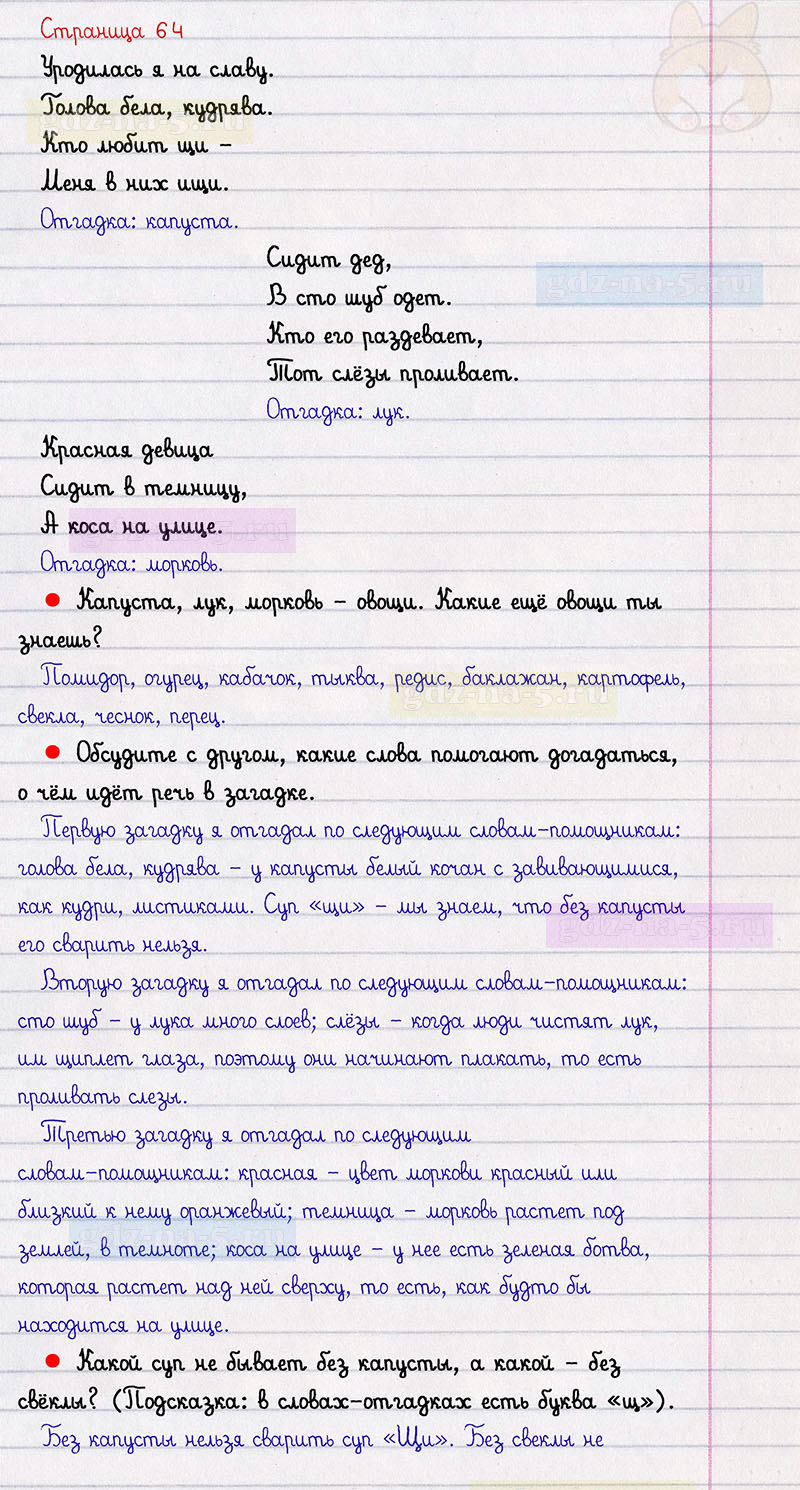 Страница 64
Уродилась я на славу.
Голова бела, кудрява.
Кто любит щи –
Меня в них ищи.
Отгадка: капуста.
Сидит дед,
В сто шуб одет.
gdz-na-5.ru
Кто его раздевает,
Тот слёзы проливает.
Отгадка: лук.
Красная девица
Сидит в темницу,
А коса на улице.
Отгадка: морковь.
• Капуста, лук, морковь – овощи. Какие ещё овощи ты
знаешь?
Помидор, огурец, кабачок, тыква, редис, баклажан, картофель,
свекла, чеснок, перец.
• Обсудите с другом, какие слова помогают догадаться,
о чём идёт речь в загадке.
Первую загадку я отгадал по следующим словам-помощникам:
голова бела, кудрява – у капусты белый кочан с завивающимися,
как кудри, листиками. Суп «щи» – мы знаем, что без капусты
его сварить нельзя.
Вторую загадку я отгадал по следующим словам-помощникам:
сто шуб – у лука много слоев; слёзы – когда люди чистят лук,
им щиплет глаза, поэтому они начинают плакать, то есть
проливать слезы.
Третью загадку я отгадал по следующим
словам-помощникам: красная – цвет моркови красный или
близкий к нему оранжевый; темница – морковь растет под
землей, в темноте; коса на улице – у нее есть зеленая ботва,
которая растет над ней сверху, то есть, как будто бы
находится на улице.
• Какой суп не бывает без капусты, а какой – без
свёклы? (Подсказка: в словах-отгадках есть буква «щ»).
Без капусты нельзя сварить суп «Щи». Без свеклы не